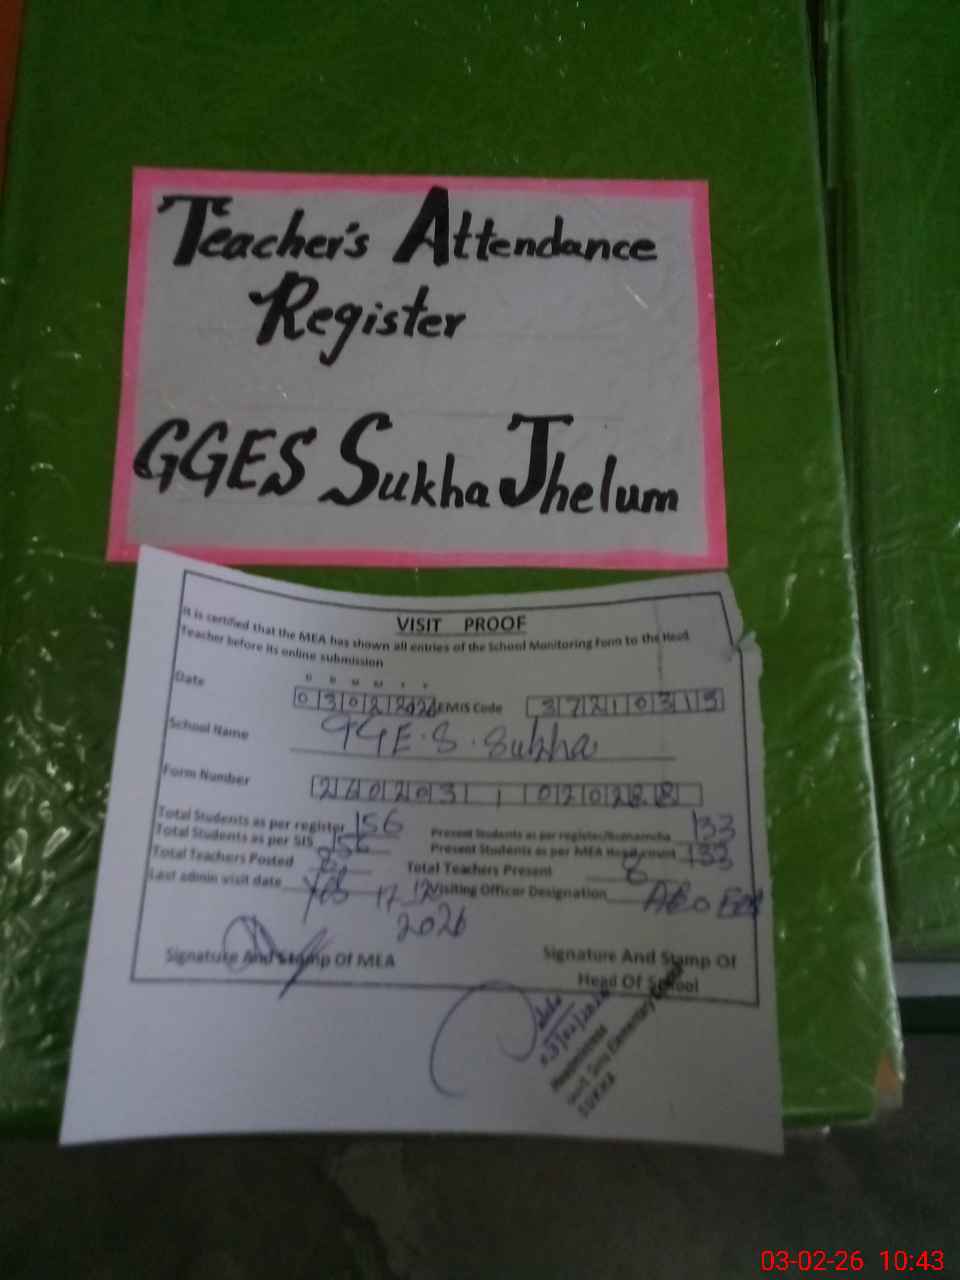 Teacher's Attendance
Register
GGES Sukha Jhelum
VISIT PROOF
It is certified that the MEA has shown all entries of the School Monitoring Form to the Head
Teacher before its online submission
D D M M Y Y
Date 03022026 EMIS Code 37210315
School Name GGE.S. Sukha
Form Number
Total Students as per register 156 Present Students as per register/Roznamcha 133
Total Students as per SIS 156 Present Students as per MEA Head count 133
Total Teachers Posted 8 Total Teachers Present 8
Last admin visit date 17 12 Visiting Officer Designation AEO
2026
Signature And Stamp Of MEA Signature And Stamp Of
Head Of School
03/02/2026
Headmistress
Govt. Girls Elementary School
SUKHA
03-02-26 10:43